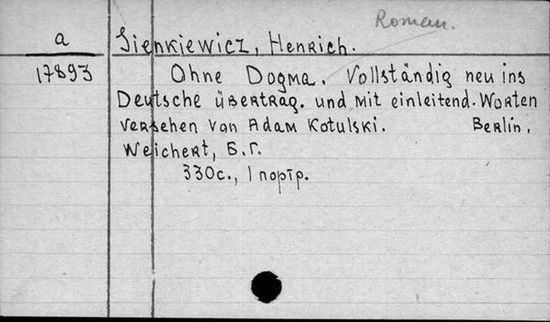 Roman.
a Sienkiewicz, Henrich.
17893 Ohne Dogma. Vollständig neu ins
Deutsche übertrag. und mit einleitend. Worten
versehen von Adam Kotulski. Berlin,
Weichert, Б.Г.
330с., 1 портр.